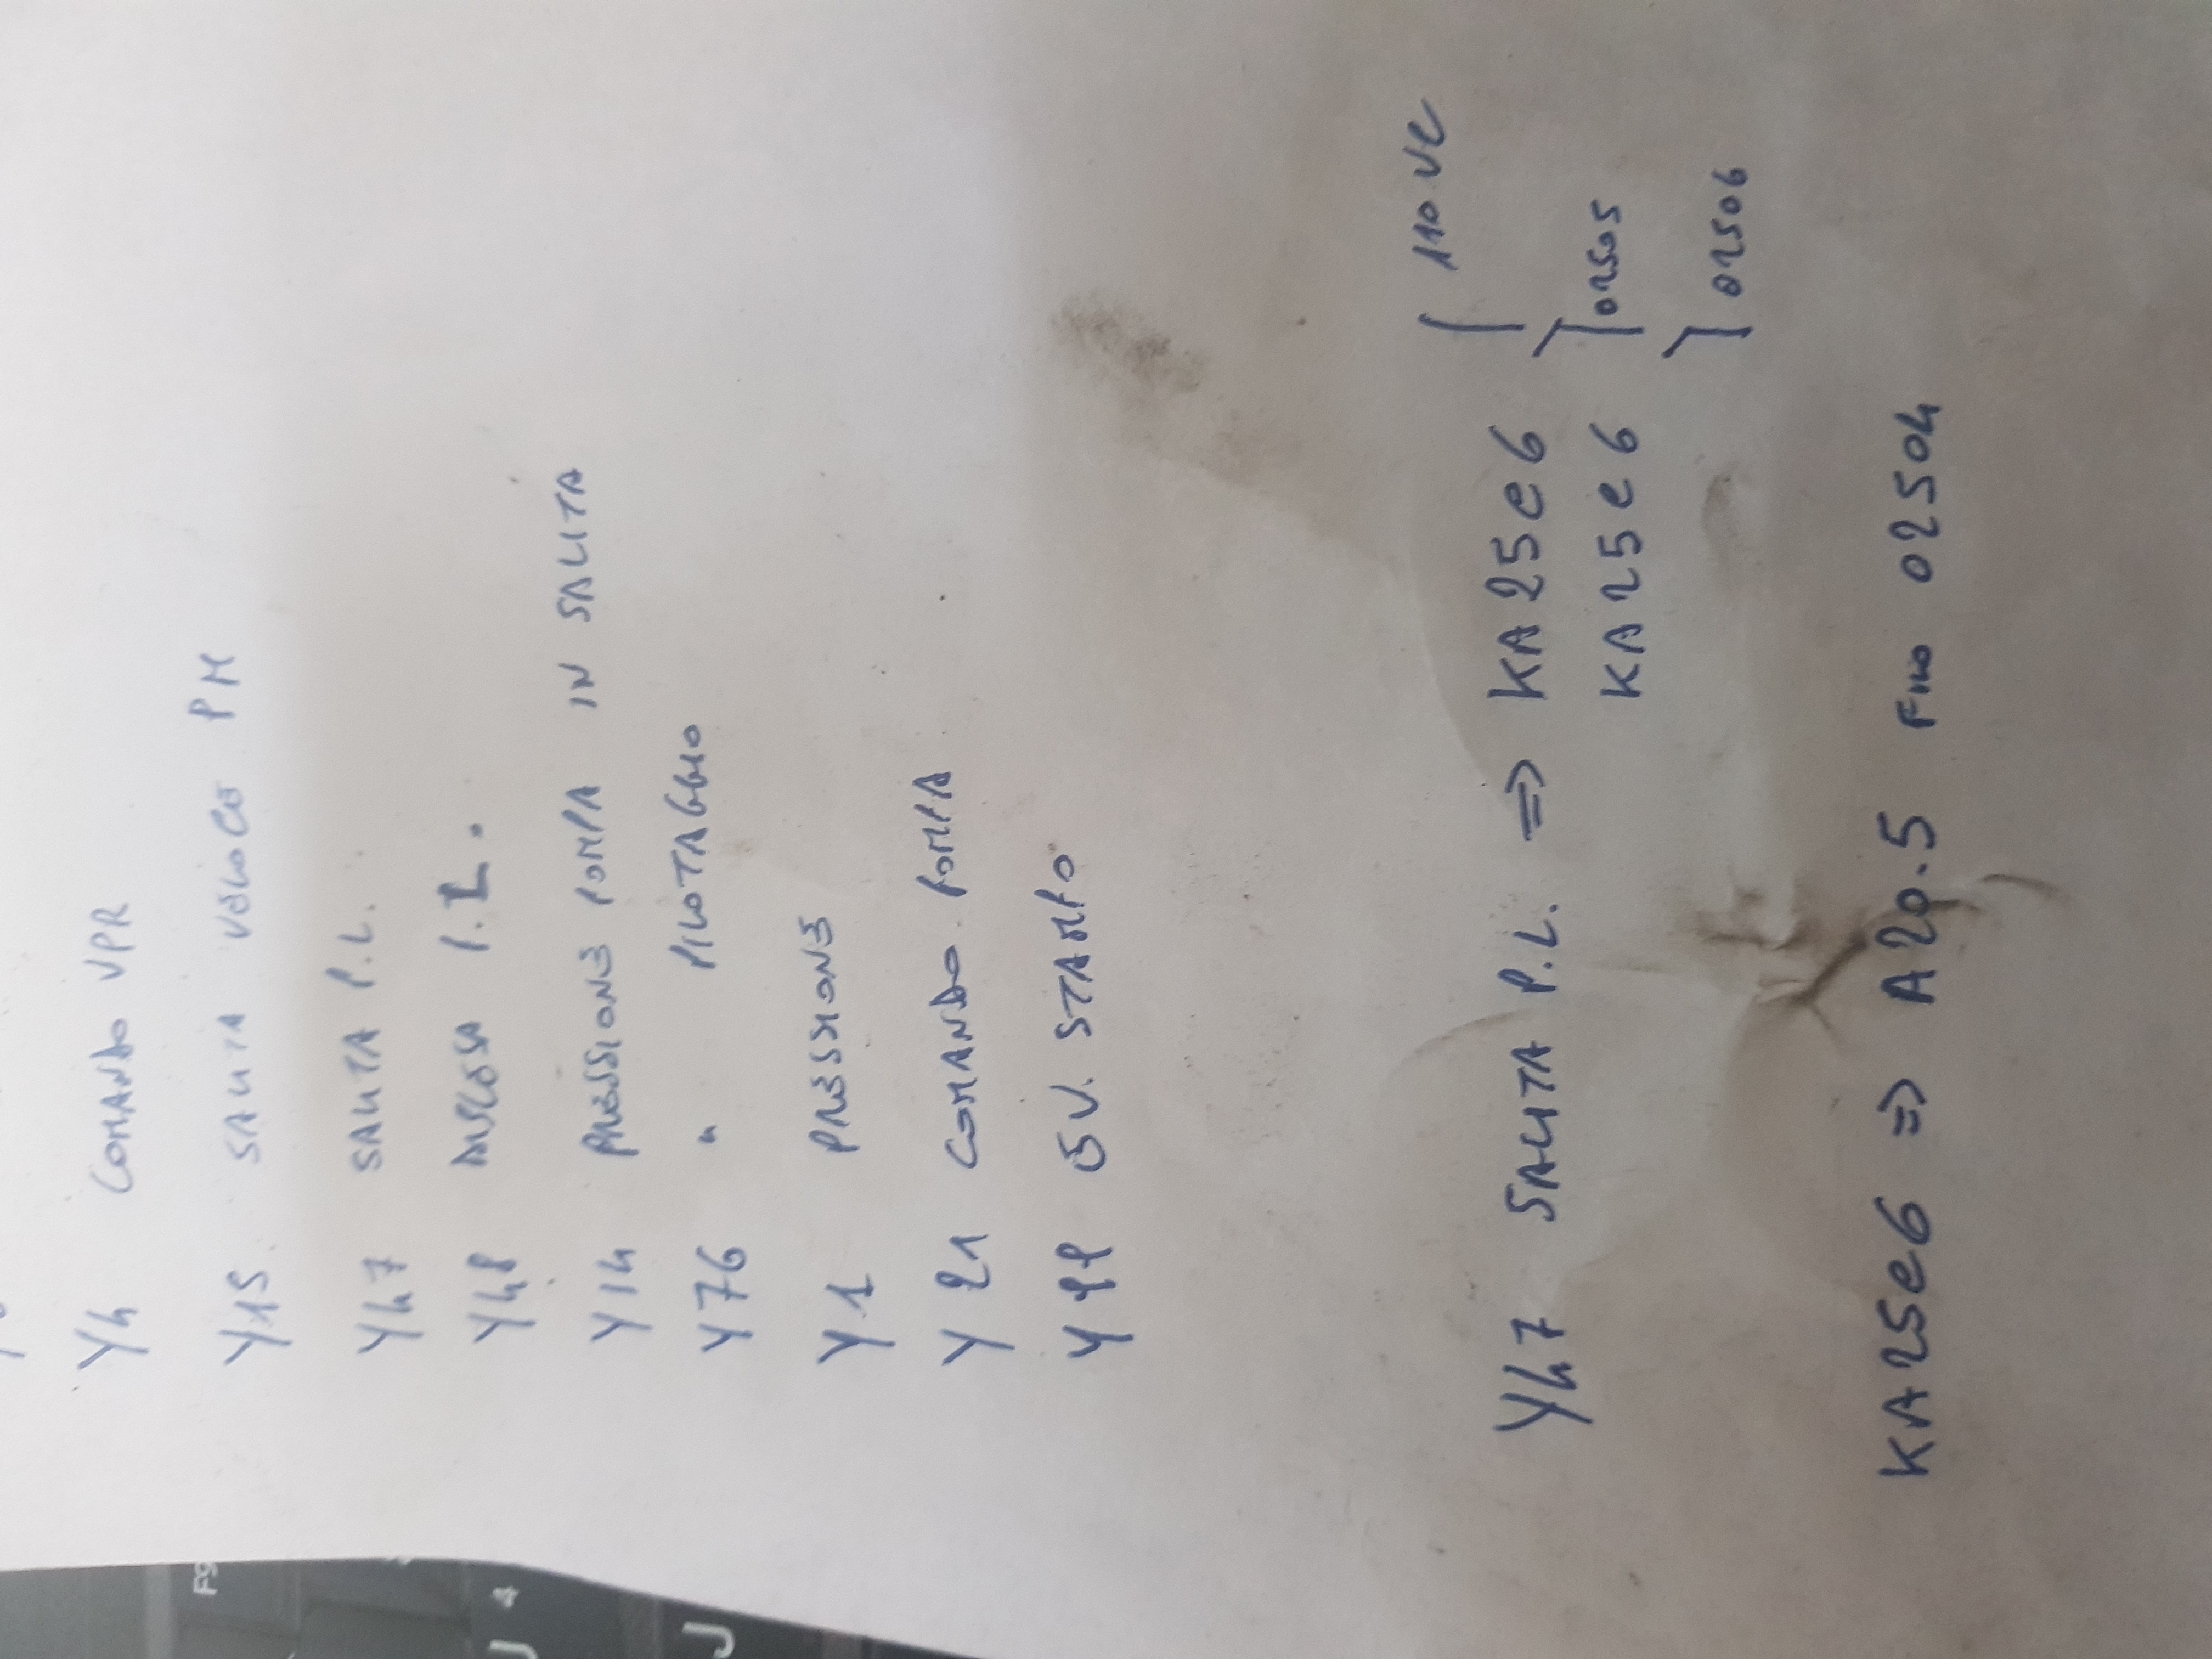 Y4 COMANDO VPR
Y15 SALITA VELOCE PM
Y47 SALITA P.L.
Y48 DISCESA P.L.
Y14 PRESSIONE POMPA IN SALITA
Y76 " PILOTAGGIO
Y1 PRESSIONE
Y21 COMANDO POMPA
EV. STAMPO
Y47 SALITA P.L. => KA25e6 { 110 VC
KA25e6 } 02505
} 02506
KA25e6 => A20.5 FILO 02504
F9
4
J